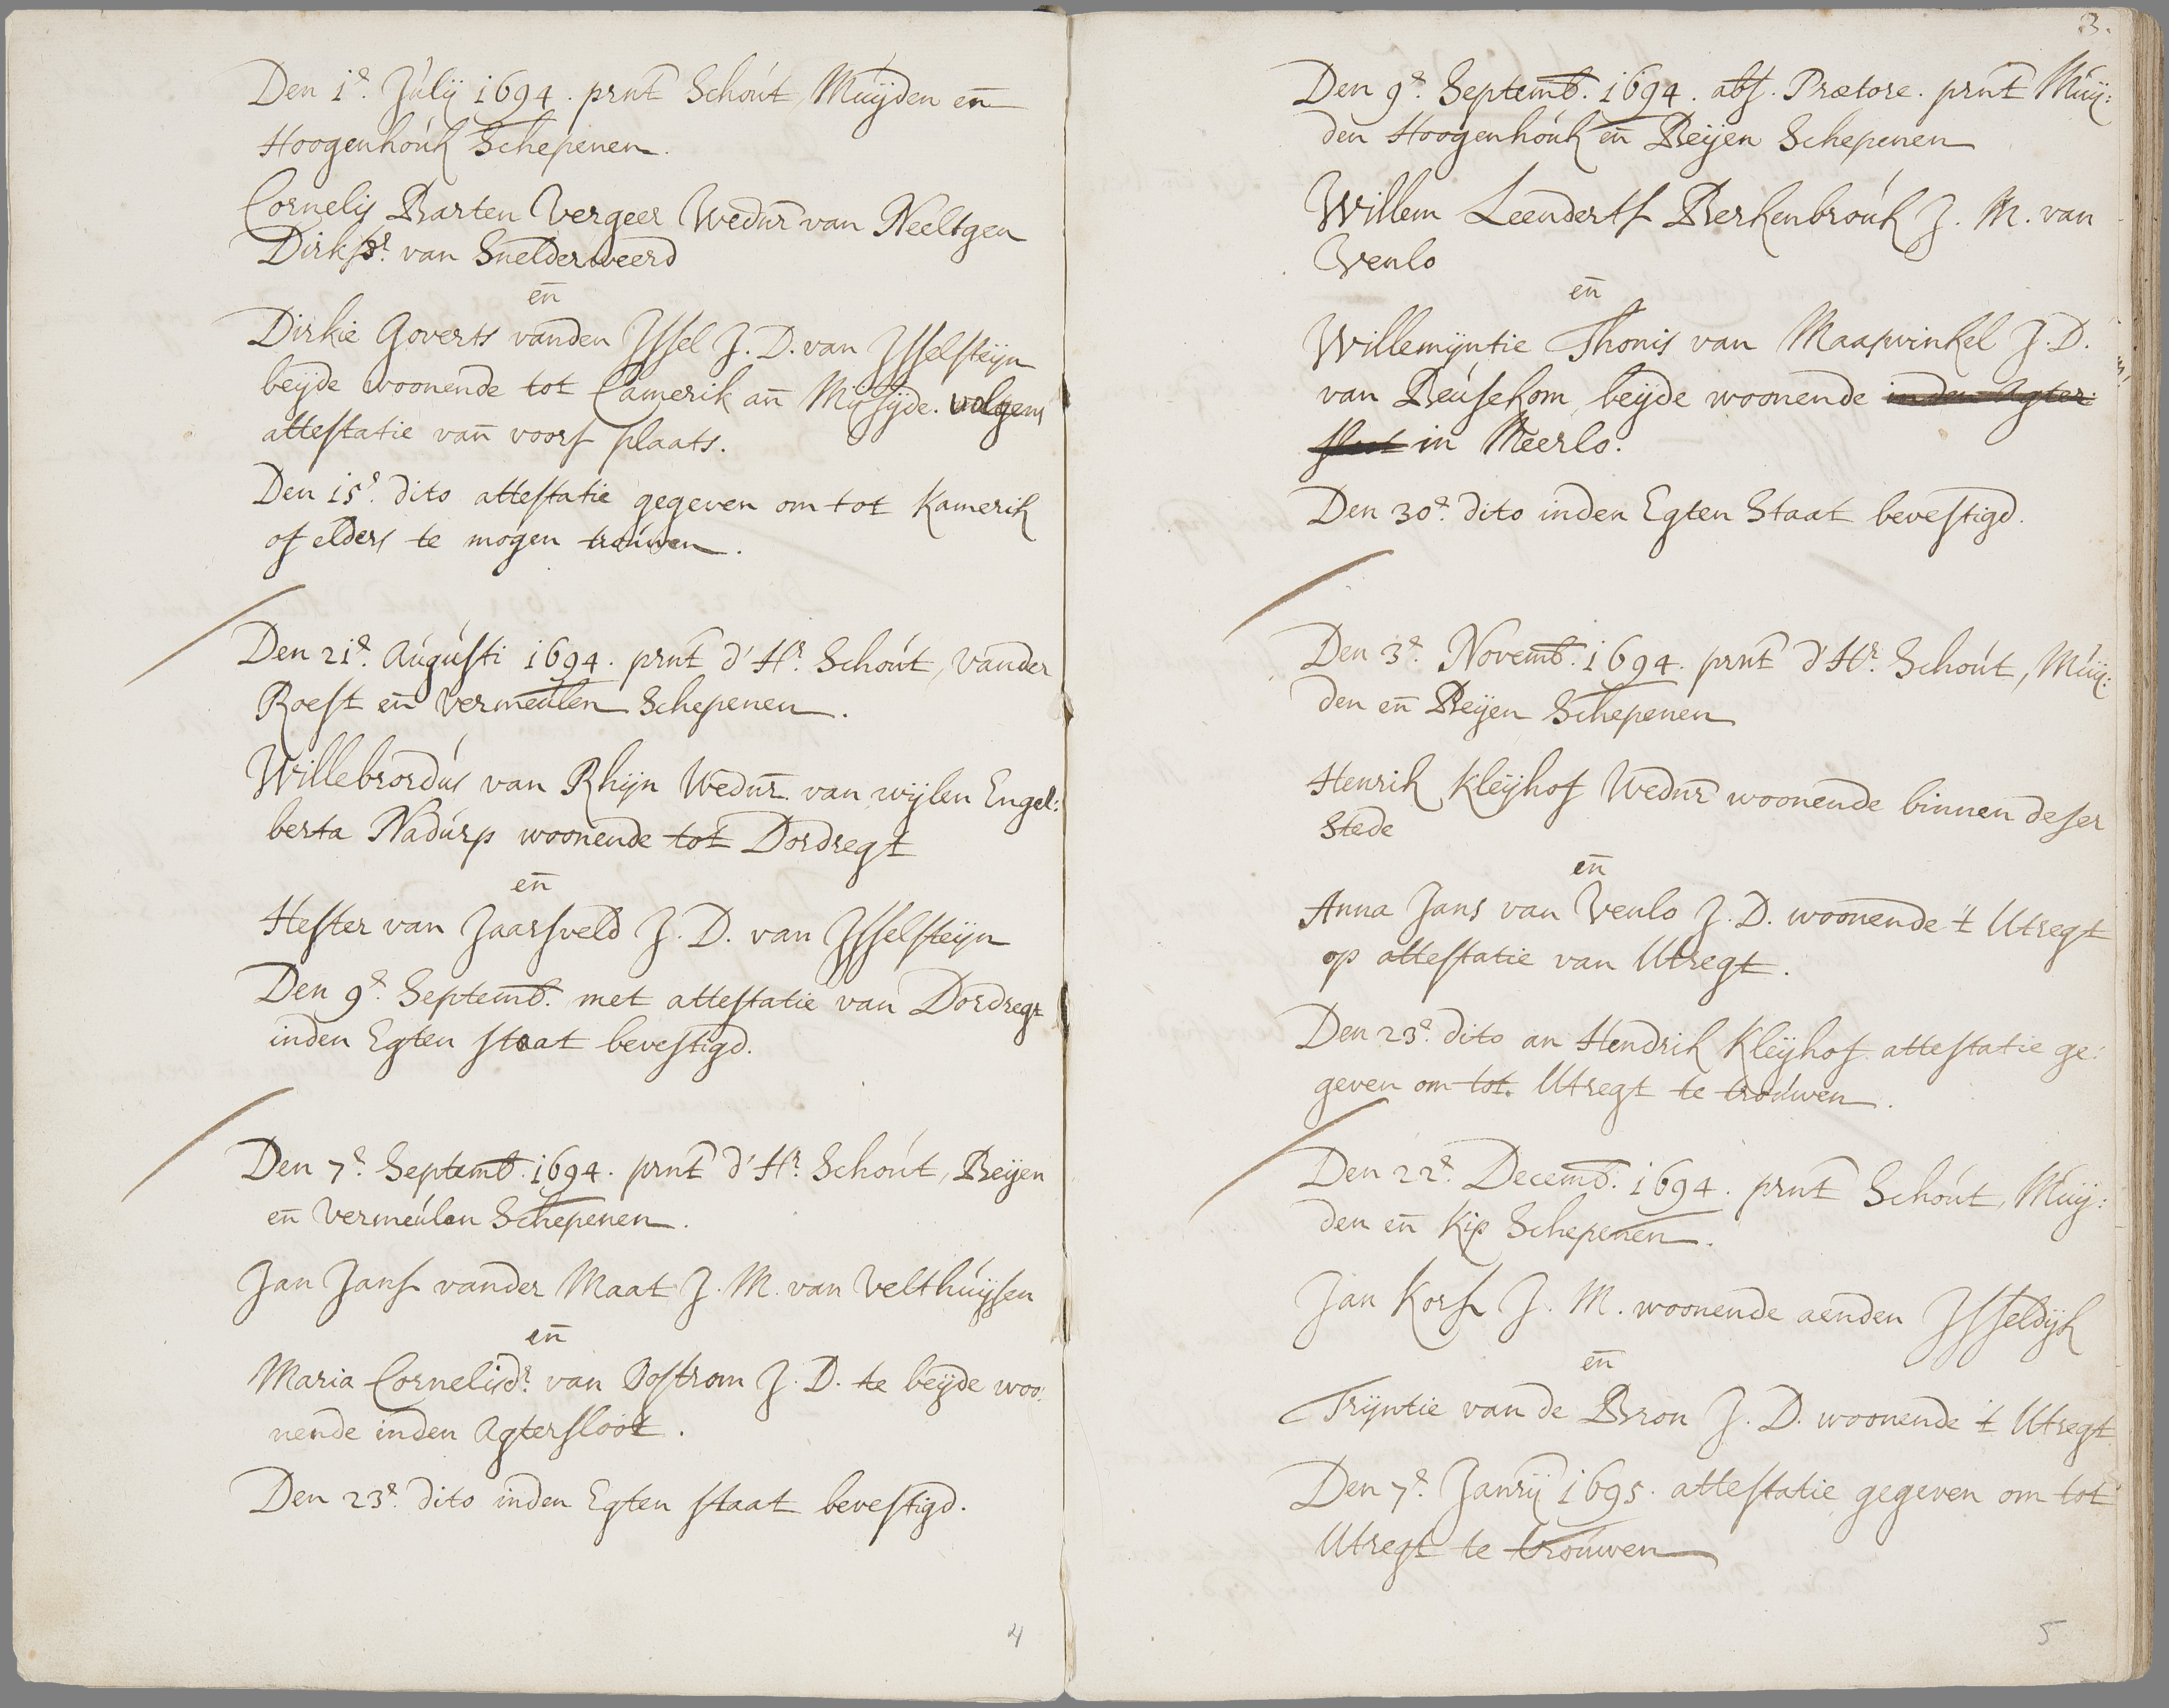 Den 1e. Julij 1694. prnt Schout, Muijden en
Hoogenhouk Schepenen.
Cornelis Barten Vergeer Wedur van Neeltgen
Dirksdr. van Snelderweerd
en
Dirkie Goverts vanden Jssel J. D. van Jsselsteijn
beijde woonende tot Camerik an Mijsijde. volgens
attestatie van voors plaats.
Den 15e. dito attestatie gegeven om tot Kamerik
of elders te mogen trouwen.
Den 21e. Augusti 1694. prnt d'Hr. Schout, vander
Roest en Vermeulen Schepenen.
Willebrordus van Rhijn Wedur. van wijlen Engel:
berta Nadurp woonende tot Dordregt
en
Hester van Jaarsveld J. D. van Jsselsteijn
Den 9e. Septemb. met attestatie van Dordregt
inden Egten staat bevestigd.
Den 7e. Septemb. 1694. prnt d'Hr. Schout, Beijen
en Vermeulen Schepenen.
Jan Jans vander Maat J. M. van Velthuijsen
en
Maria Cornelisdr. van Oostrom J. D. te beijde woo:
nende inden Agtersloot.
Den 23e. dito inden Egten staat bevestigd.
4
3.
Den 9e. Septemb. 1694. abs. Prætore. prnt Muij:
den Hoogenhouk en Beijen Schepenen
Willem Leenderts Berkenbrouk J. M. van
Venlo
en
Willemijntie Thonis van Maaswinkel J. D.
van Beusekom, beijde woonende inden Agter:
sloot in Meerlo.
Den 30e. dito inden Egten Staat bevestigd.
Den 3e. Novemb. 1694. prnt d'Hr. Schout, Muij:
den en Beijen Schepenen
Henrik Kleijhof Wedur woonende binnen deser
Stede
en
Anna Jans van Venlo J. D. woonende 't Utregt
op attestatie van Utregt.
Den 23e. dito an Hendrik Kleijhof attestatie ge:
geven om tot. Utregt te trouwen.
Den 22e. Decemb. 1694. prnt Schout, Muij:
den en Kip Schepenen.
Jan Kors J. M. woonende aenden Jsseldijk
en
Trijntie van de Bron J. D. woonende 't Utregt
Den 7e. Janrij 1695. attestatie gegeven om tot
Utregt te trouwen
5